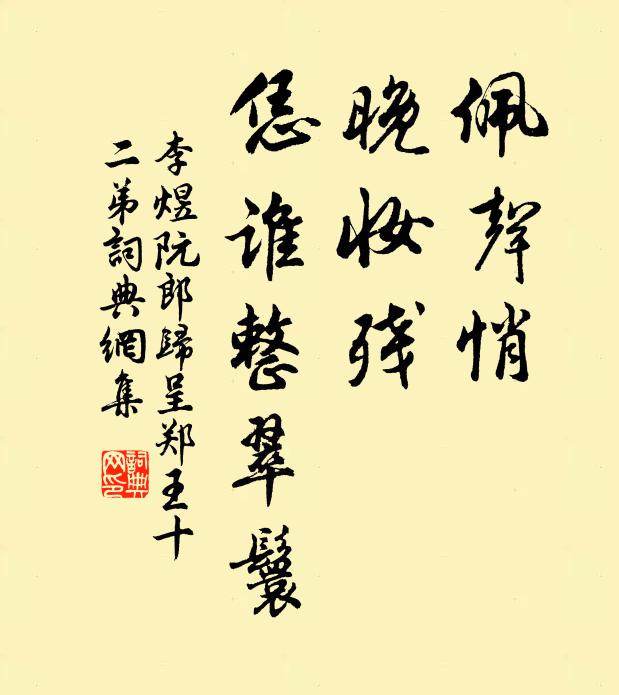 佩声悄
晚妆残
恁谁整翠鬟
李煜阮郎歸呈郑王十
二弟詞典網集
詞典网印